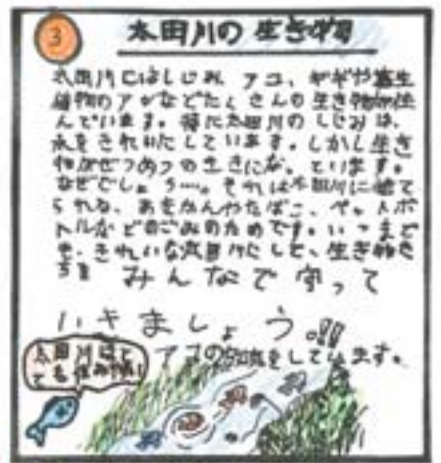 3
太田川の生き物
太田川にはしじみ、アユ、ギギや寄生
植物のアシなどたくさんの生き物が住
んでいます。特に太田川のしじみは、
水をきれいにしています。しかし生き
物がぜつめつの生きにな、ています。
なぜでしょう…。それは太田川に捨て
られる、あきかんやたばこ、ペットボ
トルなどのごみのためです。いつまで
も、きれいな太田川にして、生き物た
ちを みんなで守って
いきましょう!!
アユの
をしています。
太田川は
とても住みやすい